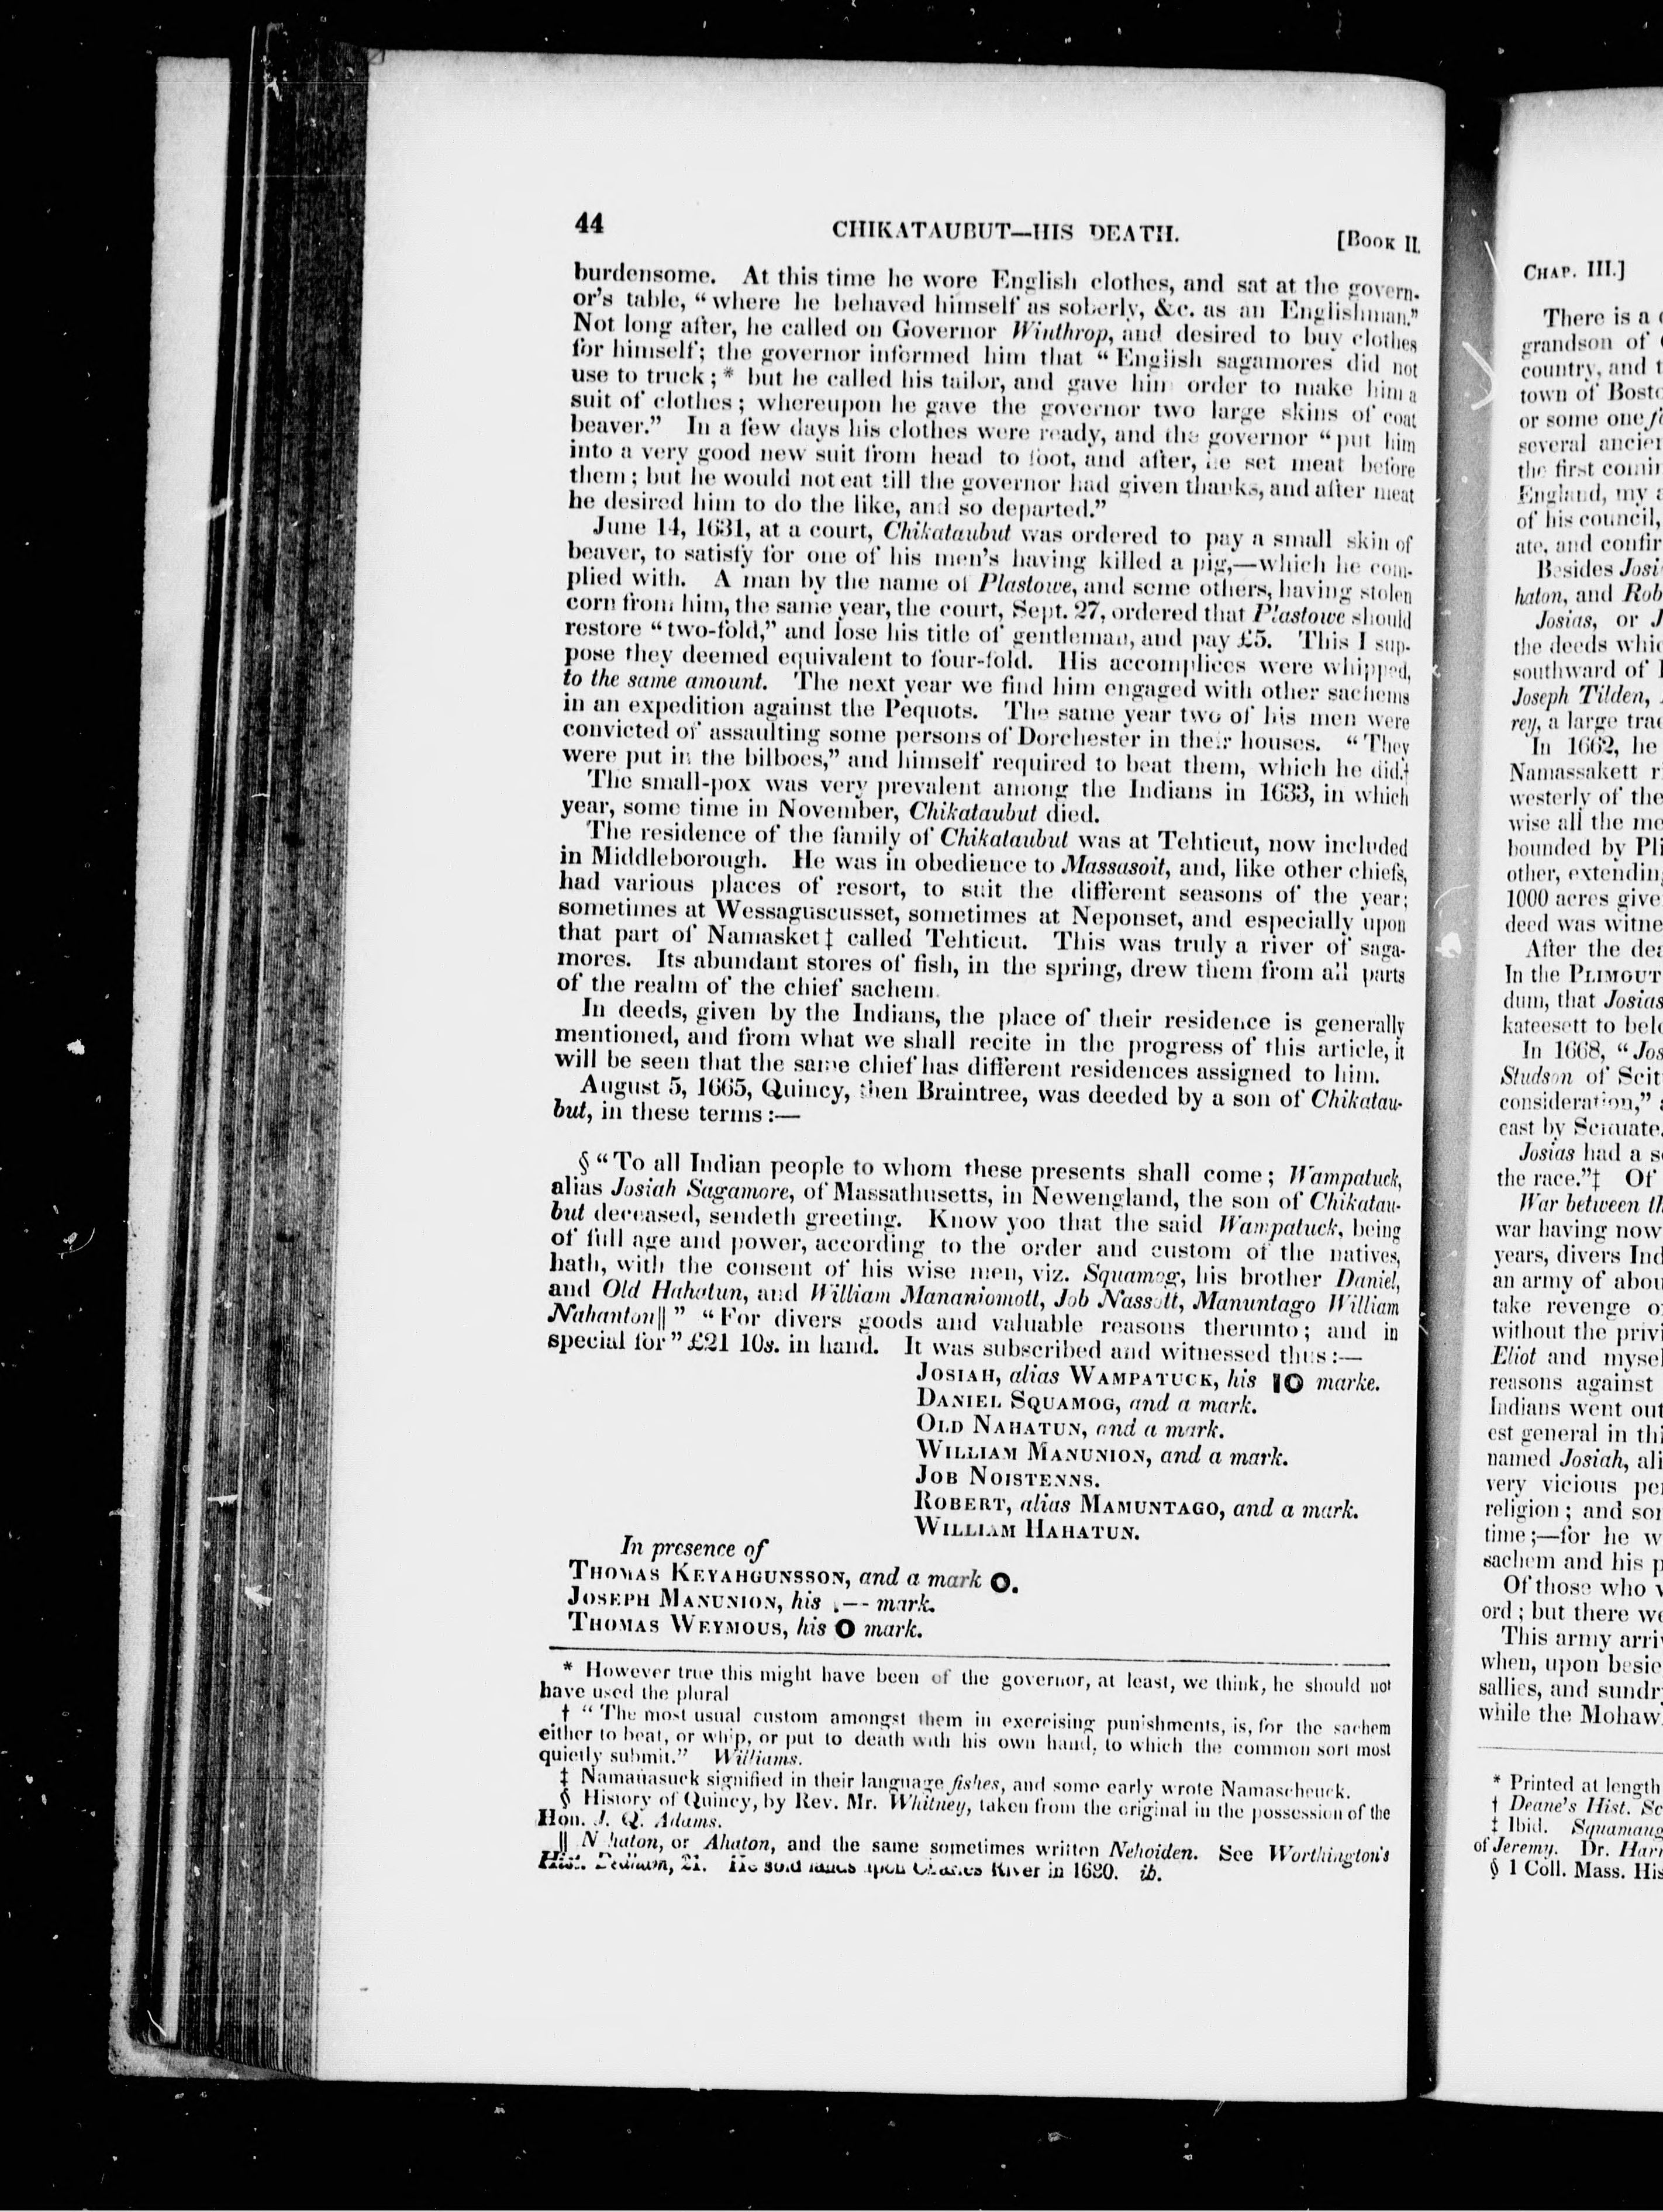 44 CHIKATAUBUT—HIS DEATH. [BOOK II.
burdensome. At this time he wore English clothes, and sat at the govern-
or's table, "where he behaved himself as soberly, &c. as an Englishman."
Not long after, he called on Governor Winthrop, and desired to buy clothes
for himself; the governor informed him that "English sagamores did not
use to truck;* but he called his tailor, and gave him order to make him a
suit of clothes; whereupon he gave the governor two large skins of coat
beaver." In a few days his clothes were ready, and the governor "put him
into a very good new suit from head to foot, and after, he set meat before
them; but he would not eat till the governor had given thanks, and after meat
he desired him to do the like, and so departed."
June 14, 1631, at a court, Chikataubut was ordered to pay a small skin of
beaver, to satisfy for one of his men's having killed a pig,—which he com-
plied with. A man by the name of Plastowe, and some others, having stolen
corn from him, the same year, the court, Sept. 27, ordered that Plastowe should
restore "two-fold," and lose his title of gentleman, and pay £5. This I sup-
pose they deemed equivalent to four-fold. His accomplices were whipped,
to the same amount. The next year we find him engaged with other sachems
in an expedition against the Pequots. The same year two of his men were
convicted of assaulting some persons of Dorchester in their houses. "They
were put in the bilboes," and himself required to beat them, which he did.†
The small-pox was very prevalent among the Indians in 1633, in which
year, some time in November, Chikataubut died.
The residence of the family of Chikataubut was at Tehticut, now included
in Middleborough. He was in obedience to Massasoit, and, like other chiefs,
had various places of resort, to suit the different seasons of the year;
sometimes at Wessaguscusset, sometimes at Neponset, and especially upon
that part of Namasket‡ called Tehticut. This was truly a river of saga-
mores. Its abundant stores of fish, in the spring, drew them from all parts
of the realm of the chief sachem.
In deeds, given by the Indians, the place of their residence is generally
mentioned, and from what we shall recite in the progress of this article, it
will be seen that the same chief has different residences assigned to him.
August 5, 1665, Quincy, then Braintree, was deeded by a son of Chikatau-
but, in these terms:—
§ "To all Indian people to whom these presents shall come; Wampatuck,
alias Josiah Sagamore, of Massathusetts, in Newengland, the son of Chikatau-
but deceased, sendeth greeting. Know yoo that the said Wampatuck, being
of full age and power, according to the order and custom of the natives,
hath, with the consent of his wise men, viz. Squamog, his brother Daniel,
and Old Hahatun, and William Mananiomott, Job Nassott, Manuntago William
Nahanton||" "For divers goods and valuable reasons therunto; and in
special for" £21 10s. in hand. It was subscribed and witnessed thus:—
JOSIAH, alias WAMPATUCK, his IO marke.
DANIEL SQUAMOG, and a mark.
OLD NAHATUN, and a mark.
WILLIAM MANUNION, and a mark.
JOB NOISTENNS.
ROBERT, alias MAMUNTAGO, and a mark.
WILLIAM HAHATUN.
In presence of
THOMAS KEYAHGUNSSON, and a mark O.
JOSEPH MANUNION, his .—- mark.
THOMAS WEYMOUS, his O mark.
* However true this might have been of the governor, at least, we think, he should not
have used the plural
† "The most usual custom amongst them in exercising punishments, is, for the sachem
either to beat, or whip, or put to death with his own hand, to which the common sort most
quietly submit." Williams.
‡ Namanasuck signified in their language fishes, and some early wrote Namascheuck.
§ History of Quincy, by Rev. Mr. Whitney, taken from the original in the possession of the
Hon. J. Q. Adams.
|| Nahaton, or Ahaton, and the same sometimes written Nehoiden. See Worthington's
Hist. Dedham, 21. He sold lands upon Charles River in 1680. ib.
CHAP. III.]
There is a
grandson of
country, and
town of Bost
or some one
several ancie
the first comin
England, my
of his council,
ate, and confir
Besides Josi
haton, and Rob
Josias, or J
the deeds whic
southward of
Joseph Tilden,
rey, a large trac
In 1662, he
Namassakett r
westerly of the
wise all the me
bounded by Pli
other, extendin
1000 acres give
deed was witne
After the dea
In the PLIMOUT
dum, that Josias
kateesett to belo
In 1668, "Jos
Studson of Scit
consideration,"
east by Scituate.
Josias had a s
the race."‡ Of
War between th
war having now
years, divers Ind
an army of abou
take revenge o
without the privi
Eliot and mysel
reasons against
Indians went out
est general in thi
named Josiah, ali
very vicious per
religion; and son
time;—for he w
sachem and his p
Of those who
ord; but there we
This army arri
when, upon besie
sallies, and sundr
while the Mohaw
* Printed at length
† Deane's Hist. Sc
‡ Ibid. Squamaug
of Jeremy. Dr. Harr
§ 1 Coll. Mass. His